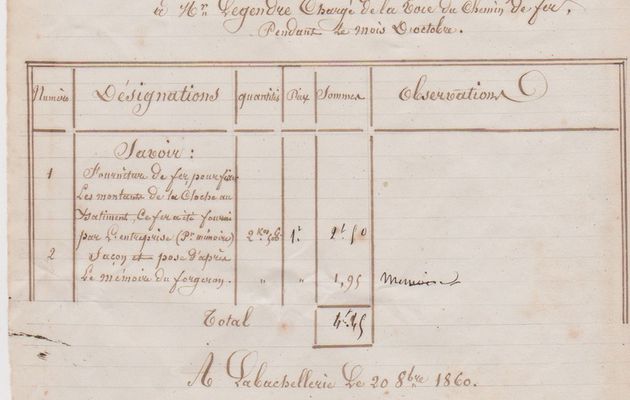 à Mr Legendre Chargé de la Voie du Chemin de fer,
Pendant Le mois D'octobre.
Numéro Désignations quantités Prix Sommes Observations
Savoir :
1 Fourniture de fer, pour fixer
Les montants de la Cloche au
Batiment, Ce fer a été fourni
par L'entreprise (Pr mémoire) 2 Kos 500 G. 1f 2f 50
2 Façon et pose d'après
Le mémoire du forgeron. " " 1,95
Total 4f.45
A Labachellerie Le 20 8bre 1860.